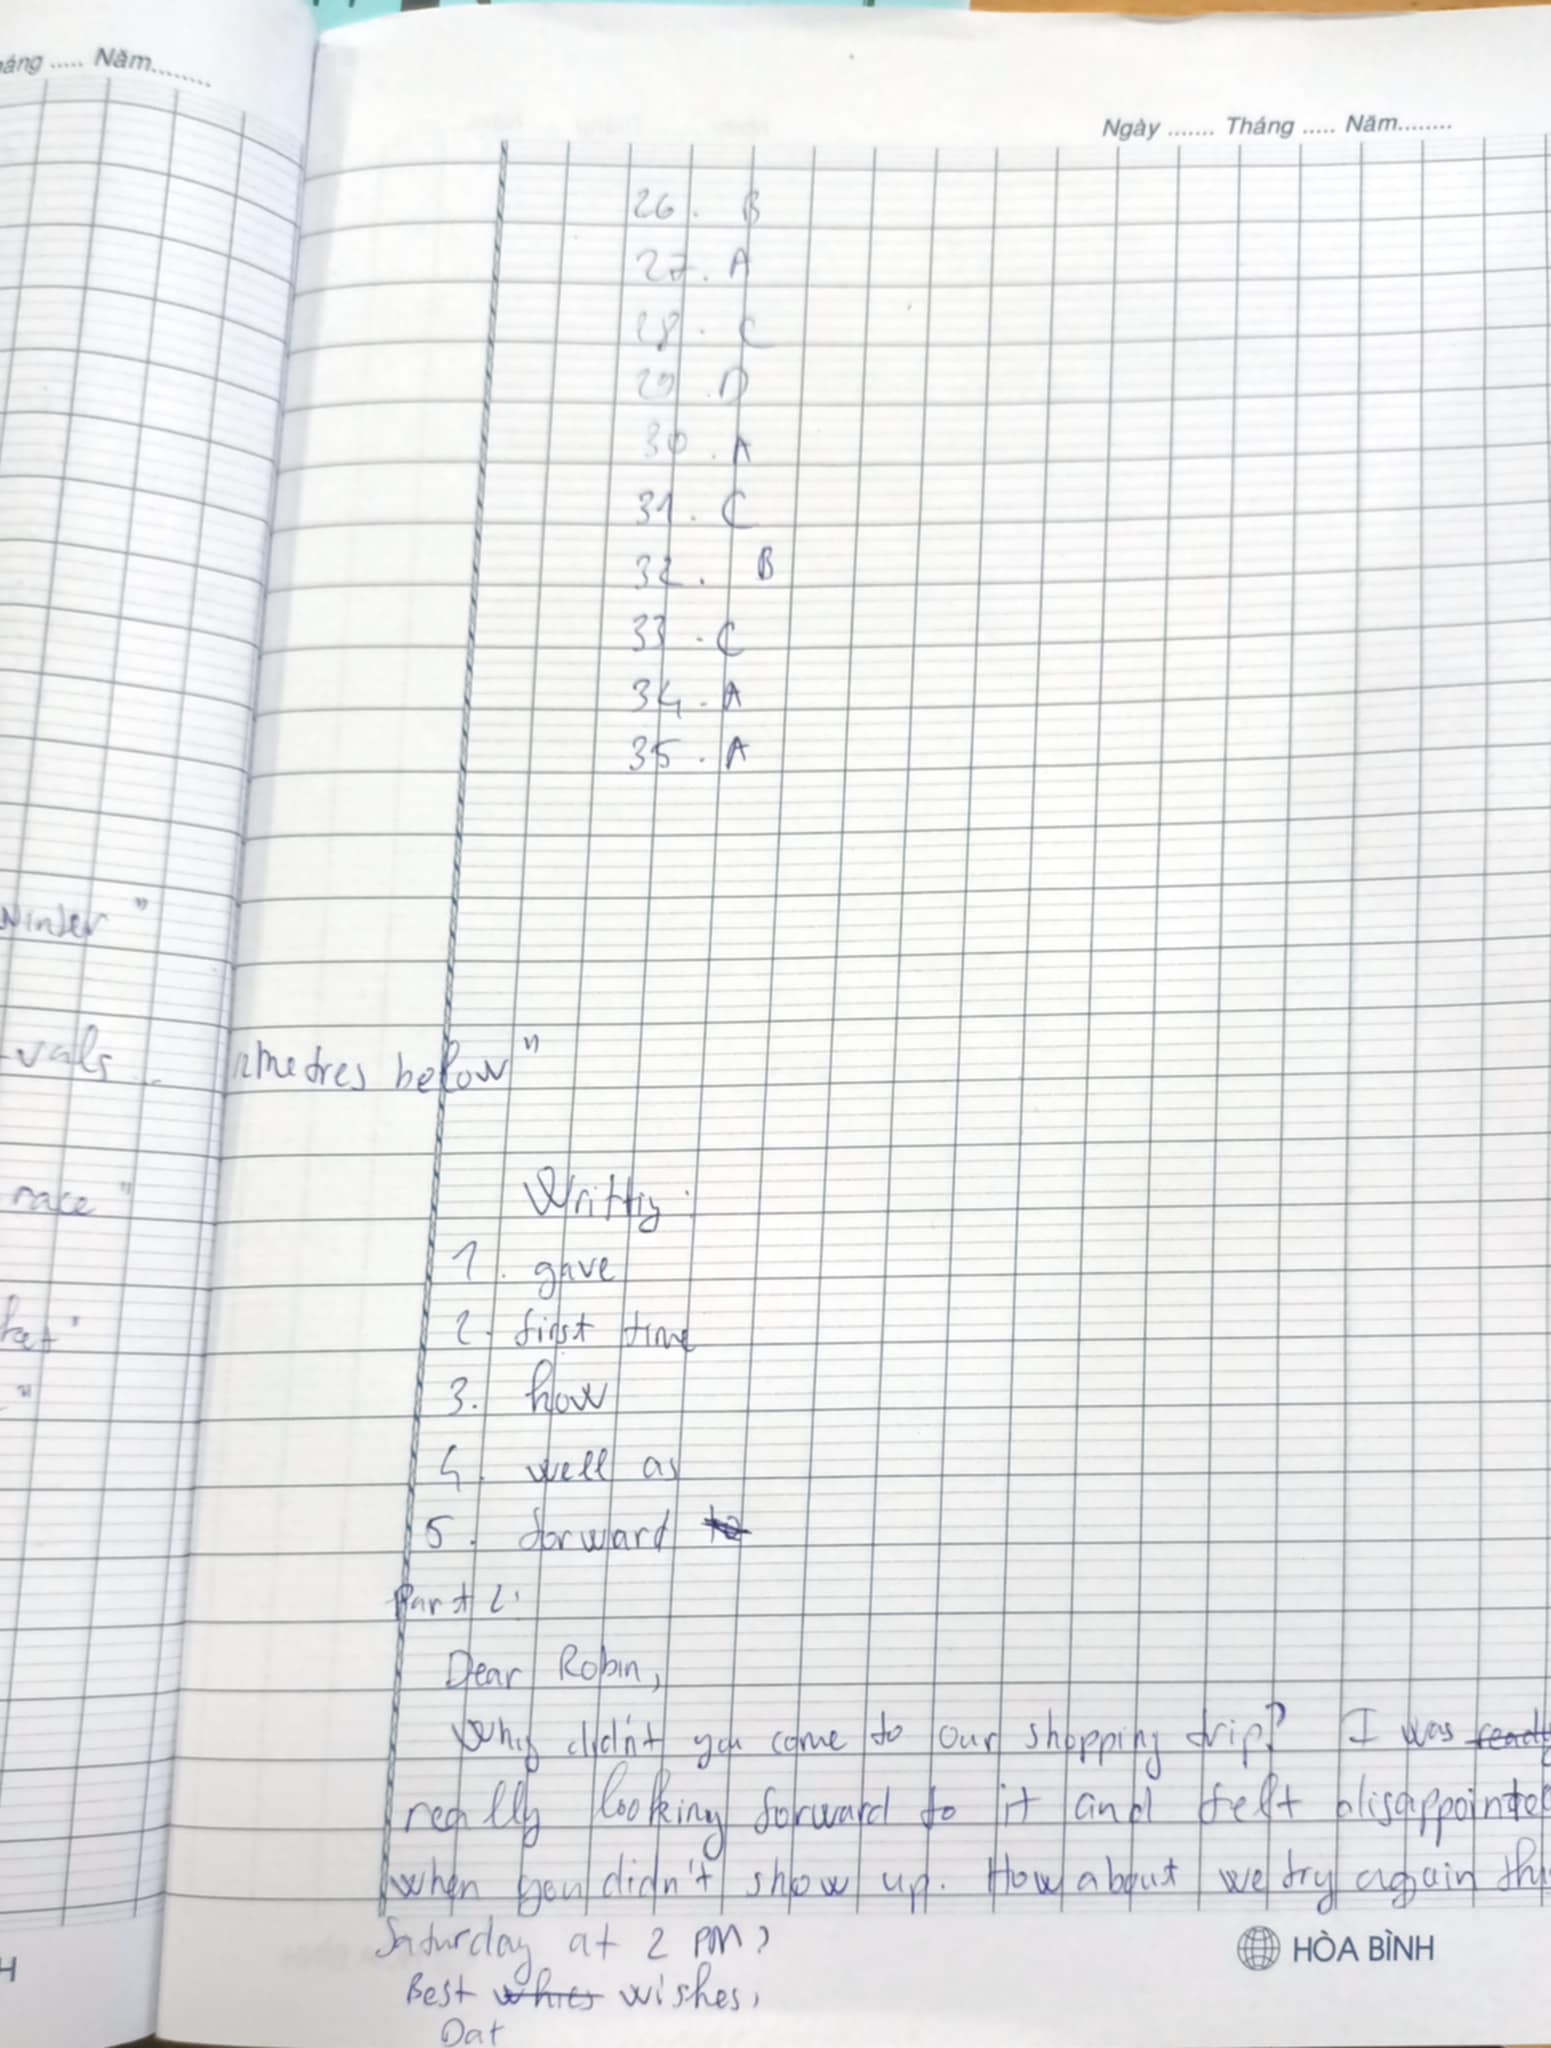 Năm........
Ngày ....... Tháng ..... Năm........
26. B
27. A
28. C
29. D
30. A
31. C
32. B
33. C
34. A
35. A
Winter"
vals
metres below"
race"
Writtig:
1. gave
2. first time
3. how
4. well as
5. forward
Part 2:
Dear Robin,
Why didn't you come to our shopping trip? I was ready
really looking forward to it and felt disappointed
when you didn't show up. How about we try again
Saturday at 2 PM?
HÒA BÌNH
Best wishes,
Dat